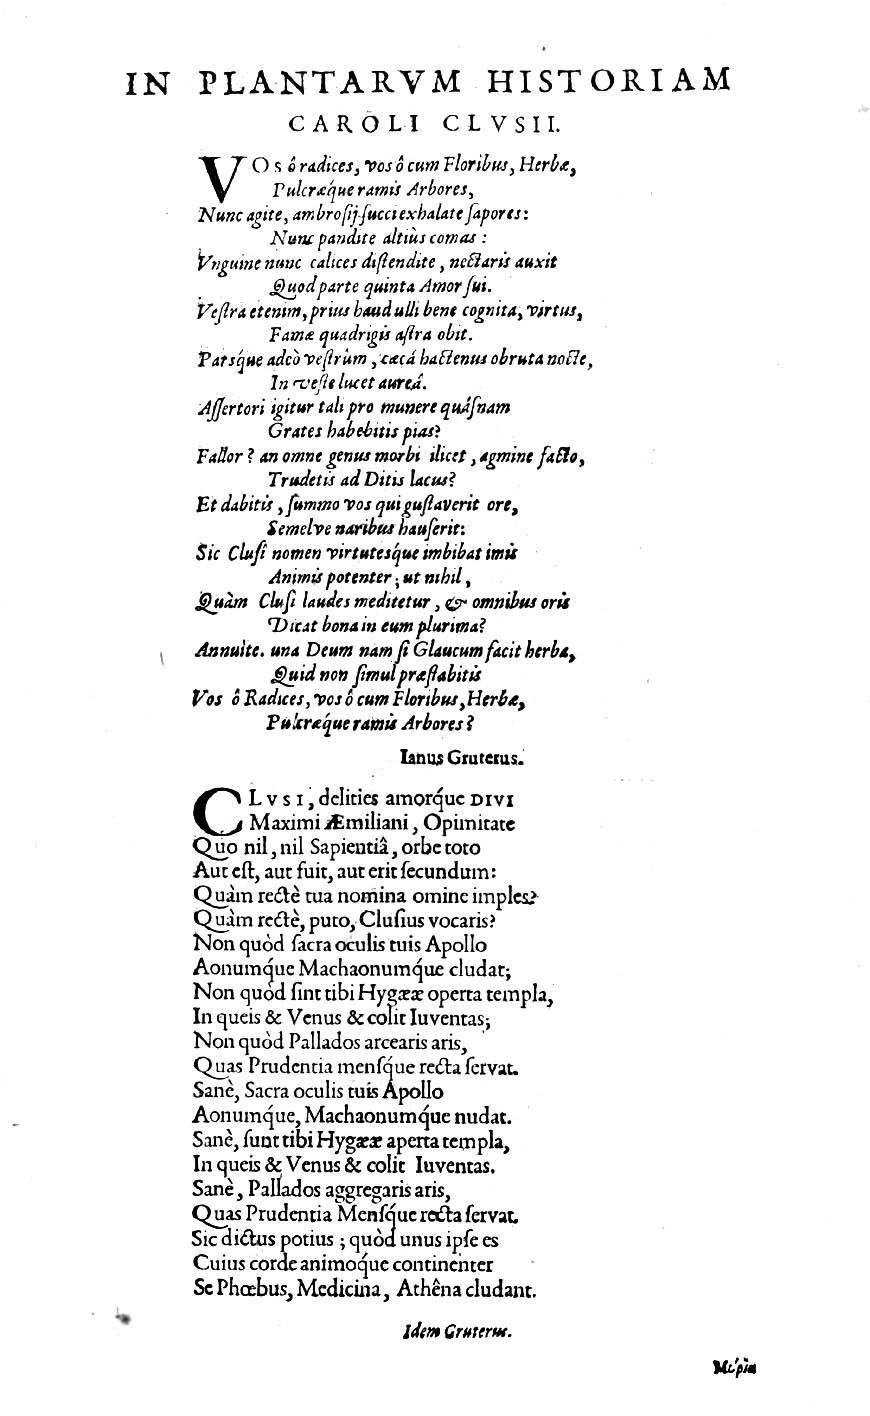 IN PLANTARVM HISTORIAM
CAROLI CLVSII.
VOs ô radices, vos ô cum Floribus, Herbæ,
Pulcræq́ue ramis Arbores,
Nunc agite, ambrosij succi exhalate sapores:
Nunc pandite altiùs comas:
Vnguine nunc calices distendite, nectaris auxit
Quod parte quinta Amor sui.
Vestra etenim, prius haud ulli bene cognita, virtus,
Famæ quadrigis astra obit.
Parsq́ue adeò vestrûm, cæcá hactenus obruta nocte,
In veste lucet aureâ.
Assertori igitur tali pro munere quâsnam
Grates habebitis pias?
Fallor? an omne genus morbi ilicet, agmine facto,
Trudetis ad Ditis lacus?
Et dabitis, summo vos qui gustaverit ore,
Semelve naribus hauserit:
Sic Clusî nomen virtutesq́ue imbibat imis
Animis potenter; ut nihil,
Quàm Clusi laudes meditetur, & omnibus oris
Dicat bona in eum plurima?
Annuite. una Deum nam si Glaucum facit herba,
Quid non simul præstabitis
Vos ô Radices, vos ô cum Floribus, Herbæ,
Pulcræq́ue ramis Arbores?
Ianus Gruterus.
CLVSI, delities amorq́ue DIVI
Maximi Æmiliani, Opimitate
Quo nil, nil Sapientiâ, orbe toto
Aut est, aut fuit, aut erit secundum:
Quàm rectè tua nomina omine imples?
Quàm rectè, puto, Clusius vocaris?
Non quòd sacra oculis tuis Apollo
Aonumq́ue Machaonumq́ue cludat;
Non quòd sint tibi Hygææ operta templa,
In queis & Venus & colit Iuventas;
Non quòd Pallados arcearis aris,
Quas Prudentia mensq́ue recta servat.
Sanè, Sacra oculis tuis Apollo
Aonumq́ue, Machaonumq́ue nudat.
Sanè, sunt tibi Hygææ aperta templa,
In queis & Venus & colit Iuventas.
Sanè, Pallados aggregaris aris,
Quas Prudentia Mensq́ue recta servat.
Sic dictus potius; quòd unus ipse es
Cuius corde animoq́ue continenter
Se Phœbus, Medicina, Athêna cludant.
Idem Gruterus.